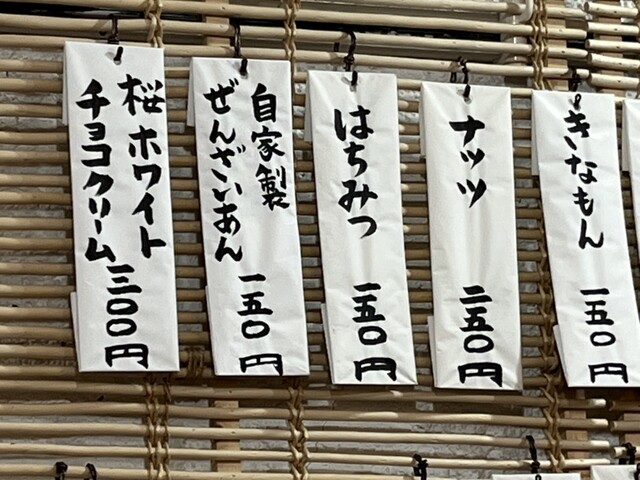 桜ホワイト
チョコクリーム
三〇〇円
自家製
ぜんざいあん
一五〇円
はちみつ
一五〇円
ナッツ
二五〇円
きなもん
一五〇円